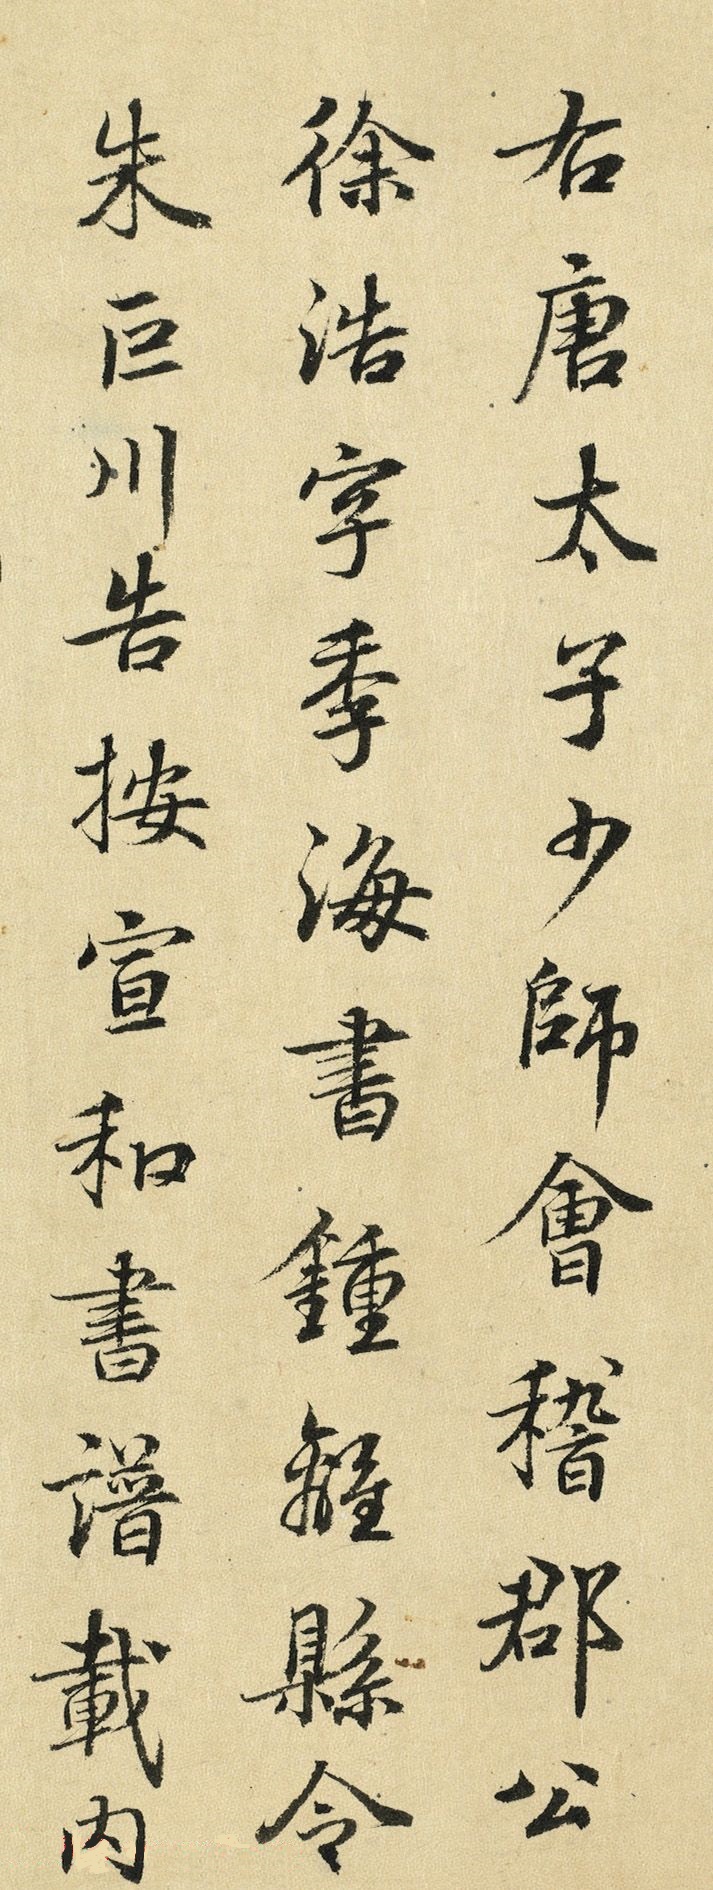 右唐太子少師會稽郡公
徐浩字季海書鍾離縣令
朱巨川告按宣和書譜載内